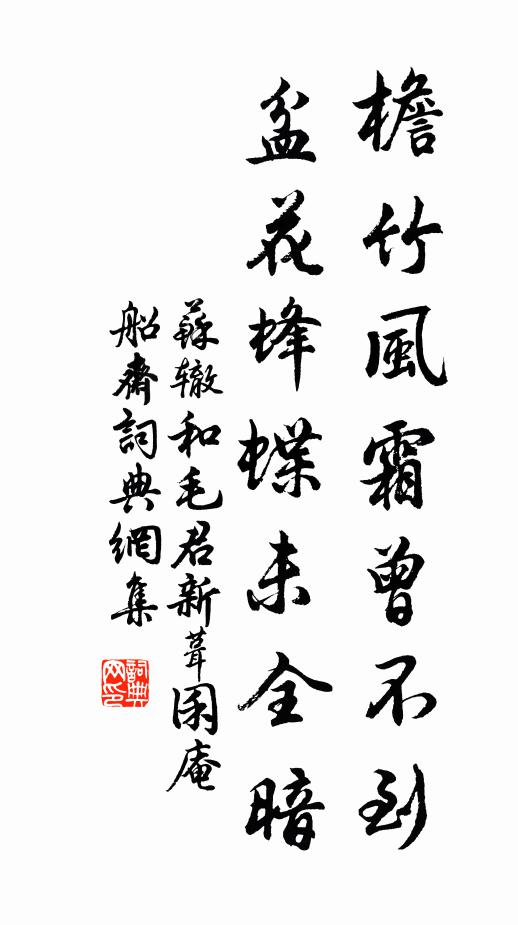 檐竹風霜曾不到
盆花蜂蝶未全暗
蘇辙和毛君新葺囷庵
船齋詞典網集
詞典网印